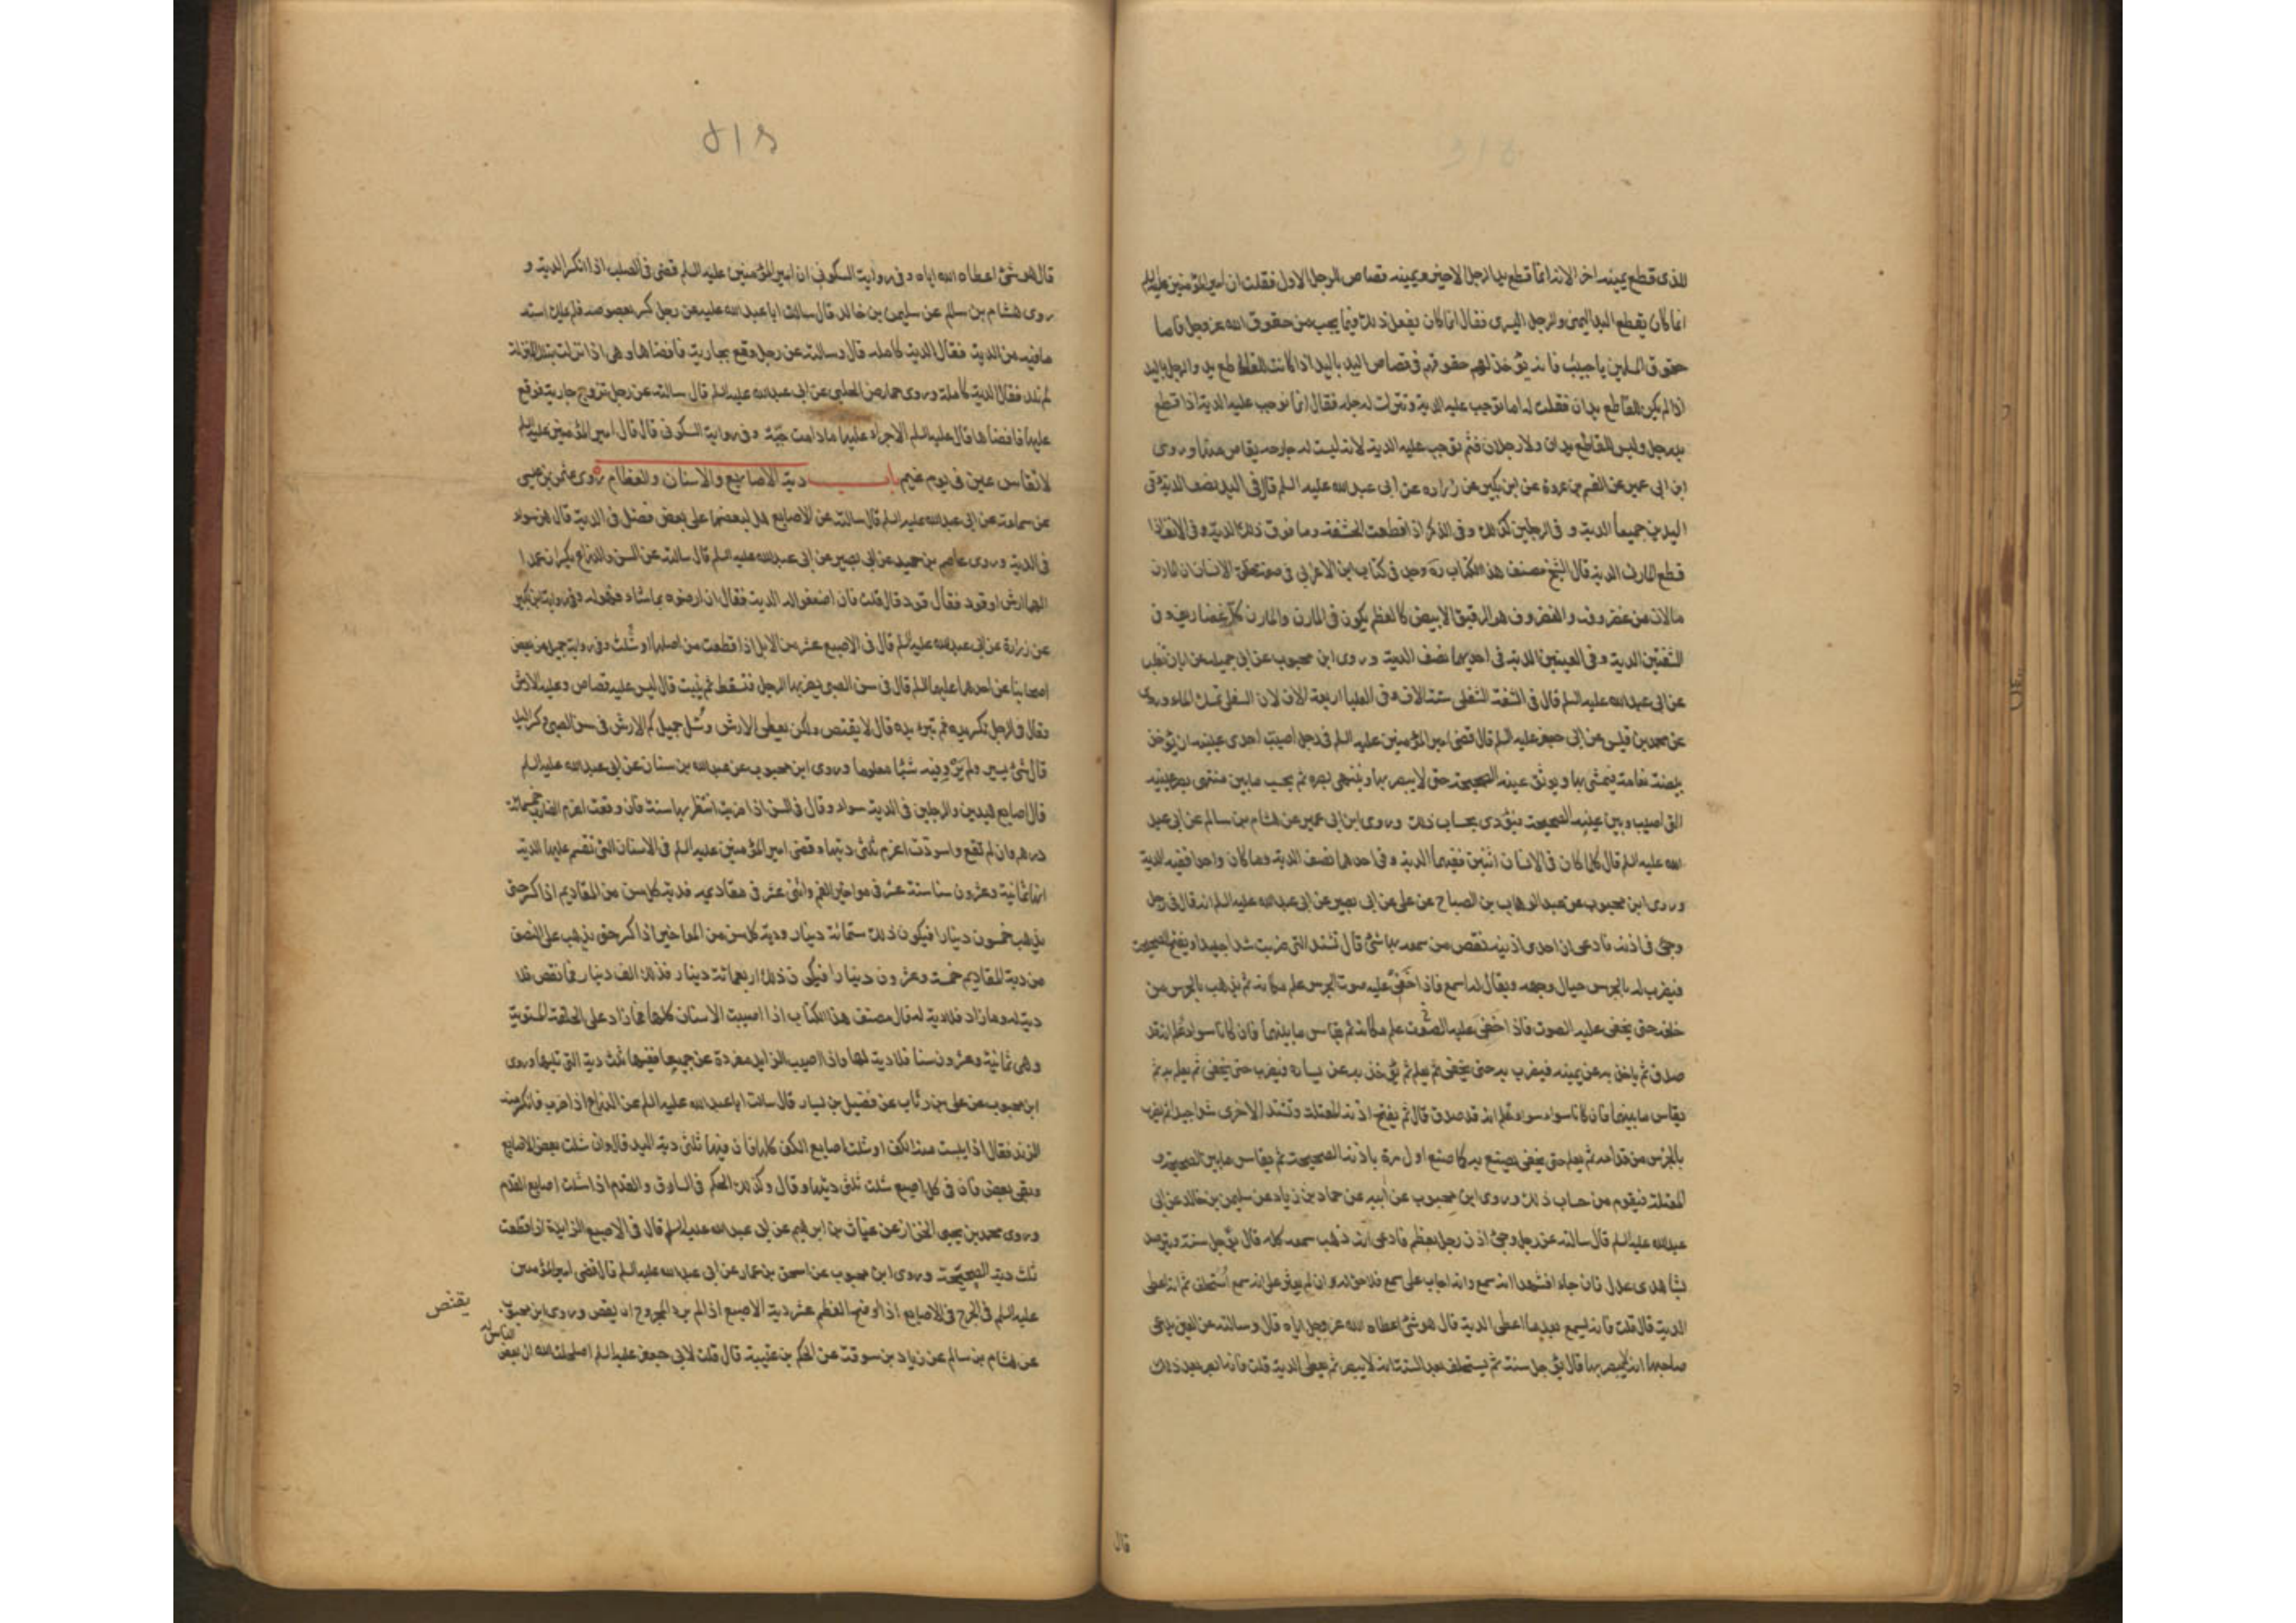 للذى قطع يمينه اخرا لانه انما قطع يد الرجل الاخير ويمينه قصاص للرجل الاول فقلت ان امير المؤمنين عليه السلم
انما كان يقطع اليد اليمنى والرجل اليسرى فقال انما كان يفعل ذلك فيما يجب من حقوق الله عز وجل فاما
حقوق المسلمين يا حبيب فانه يؤخذ لهم حقوقهم فى قصاص اليد باليد اذا كانت للقاطع يد والرجل باليد
اذا لم يكن للقاطع يدان فقلت له اما توجب عليه الدية وتترك له رجله فقال انما نوجب عليه الدية اذا قطع
يد رجل وليس للقاطع يدان ولا رجلان فثم توجب عليه الدية لانه ليست له جارحة يقاص منها وروى
ابن ابى عمير عن القسم بن عروة عن ابن بكير عن زراره عن ابى عبد الله عليه السلم قال فى اليد نصف الدية وفى
اليدين جميعا الدية و فى الرجلين كذلك وفى الذكر اذا قطعت الحشفة وما فوق ذلك الدية وفى الانف اذا
قطع المارن الدية قال الشيخ مصنف هذا الكتاب ره وجدت فى كتاب ابن الاعرابى فى صفة خلق الانسان ان المارن
مالان من غضروف والغضروف هو الرقيق الابيض كالعظم يكون فى المارن والمارن كله غضاريف وفى
الشفتين الدية وفى العينين الدية فى احديهما نصف الدية وروى ابن محبوب عن ابى جميلة عن ابان بن تغلب
عن ابى عبد الله عليه السلم قال فى الشفة السفلى ستة الاف وفى العليا اربعة الاف لان السفلى تمسك الماء وروى
عن محمد بن قيس عن ابى جعفر عليه السلم قال قضى امير المؤمنين عليه السلم فى رجل اصيب احدى عينيه ان يؤخذ
بيضة نعامة فيمشى بها ويوثق عينه الصحيحة حتى لا يبصر بها وينتهى بصره ثم يحسب ما بين منتهى بصر عينه
التى اصيب وبين عينه الصحيحة فيؤدى بحساب ذلك وروى ابن ابى عمير عن هشام بن سالم عن ابى عبد
الله عليه السلم قال كلما كان فى الانسان اثنين ففيهما الدية وفى احدهما نصف الدية وما كان واحدا ففيه الدية
وروى ابن محبوب عن عبد الوهاب بن الصباح عن على عن ابى بصير عن ابى عبد الله عليه السلم انه قال فى رجل
وجئ فى اذنه فادعى ان احدى اذنيه نقص من سمعه بها شئ قال تشد التى ضربت شدا جيدا ويفتح الصحيحة
فيضرب له بالجرس حيال وجهه ويقال له اسمع فاذا خفى عليه صوت الجرس علم مكانه ثم يذهب بالجرس من
خلفه حتى يخفى عليه الصوت فاذا خفى عليه الصوت علم مكانه ثم يقاس ما بينهما فان كانا سواء علم انه قد
صدق ثم ياخذ به عن يمينه فيضرب به حتى يخفى ثم يعلم ثم يؤخذ به عن يساره فيضرب حتى يخفى ثم يعلم به ثم
يقاس ما بينهما فان كانا سواء علم انه قد صدق قال ثم يفتح اذنه المعتلة وتشد الاخرى شدا جيدا ثم يضرب
بالجرس من قدامه ثم يعلم حتى يخفى يصنع به كما صنع اول مرة باذنه الصحيحة ثم يقاس ما بين الصحيحة و
المعتلة فيقوم من حساب ذلك وروى ابن محبوب عن ابيه عن حماد بن زياد عن سليمن بن خالد عن ابى
عبد الله عليه السلم قال سالته عن رجل وجئ اذن رجل بعظم فادعى انه ذهب سمعه كله قال يؤجل سنة ويترصد
بشاهدى عدل فان جاءا فشهدا انه سمع وانه اجاب على سمع فلا حق له وان لم يعثر على انه سمع استحلف ثم اعطى
الدية قال قلت فانه يسمع بعد ما اعطى الدية قال هو شئ اعطاه الله عز وجل اياه قال وسالته عن العين يدعى
صاحبها انه لا يبصر بها قال يؤجل سنة ثم يستحلف بعد السنة انه لا يبصر ثم يعطى الدية قلت فانه ابصر بعد ذلك
قال
٥١٤
قال هو شئ اعطاه الله اياه وفى رواية السكونى ان امير المؤمنين عليه السلم قضى فى الصلب اذا انكسر الدية و
روى هشام بن سالم عن سليمن بن خالد قال سالت ابا عبد الله عليه عن رجل كسر بعصوصه فلم يملك استه
ما فيه من الدية فقال الدية كاملة قال وسالته عن رجل وقع بجارية فافضاها وهى اذا نزلت بتلك المنزلة
لم تلد فقال الدية كاملة وروى حماد عن الحلبى عن ابى عبد الله عليه السلم قال سالته عن رجل تزوج جارية فوقع
عليها فافضاها قال عليه السلم الاجراء عليها مادامت حيّة وفى رواية السكونى قال قال امير المؤمنين عليه السلم
لا تقاس عين فى يوم غيم باب دية الاصابع والاسنان والعظام روى عثمن بن عيسى
عن سماعة عن ابى عبد الله عليه السلم قال سالته عن الاصابع هل لبعضها على بعض فضل فى الدية قال هن سواء
فى الدية وروى عاصم بن حميد عن ابى بصير عن ابى عبد الله عليه السلم قال سالته عن السن والذراع يكسران عمدا
الهما ارش او قود فقال قود قال قلت فان اضعفوا له الدية فقال ان ارضوه بما شاء فهو له وفى رواية ابن بكير
عن زرارة عن ابى عبد الله عليه السلم قال فى الاصبع عشر من الابل اذا قطعت من اصلها او شلت وفى رواية جميل عن بعض
اصحابنا عن احدهما عليهما السلم قال فى سن الصبى يضربها الرجل فتسقط ثم ينبت قال ليس عليه قصاص وعليه الارش
وقال فى الرجل تكسر يده ثم تبرء يده قال لا يقتص ولكن يعطى الارش وسُئل جميل كم الارش فى سن الصبى وكسر اليد
قال شئ يسير ولم يرو فيه شيئا معلوما وروى ابن محبوب عن عبد الله بن سنان عن ابى عبد الله عليه السلم
قال اصابع اليدين والرجلين فى الدية سواء وقال فى السن اذا ضربت انتظر بها سنة فان وقعت اغرم الضارب خمسمائة
درهم وان لم تقع واسودت اغرم ثلثى ديتها وقضى امير المؤمنين عليه السلم فى الاسنان التى تقسم عليها الدية
انها ثمانية وعشرون سنا ستة عشر فى مواخير الفم واثنى عشر فى مقاديمه فدية كل سن من المقاديم اذا كسر حتى
يذهب خمسون دينارا فيكون ذلك ستمائة دينار ودية كل سن من المواخير اذا كسر حتى يذهب على النصف
من دية المقاديم خمسة وعشرون دينارا فيكون ذلك اربعمائة دينار فذلك الف دينار فما نقص فلا
دية له وما زاد فلا دية له قال مصنف هذا الكتاب اذا اصيبت الاسنان كلها فما زاد على الخلقة المستوية
وهى ثمانية وعشرون سنا فلا دية لها واذا اصيب الزايد مفردة عن جميعها ففيها ثلث دية التى تليها وروى
ابن محبوب عن على بن رئاب عن فضيل بن يسار قال سالت ابا عبد الله عليه السلم عن الذراع اذا ضرب فانكسر منه
الزند فقال اذا يبست منه الكف او شلت اصابع الكف كلها فان فيها ثلثى دية اليد قال وان شلت بعض الاصابع
وبقى بعض فان فى كل اصبع شلت ثلثى ديتها وقال وكذلك الحكم فى الساق والقدم اذا شلت اصابع القدم
وروى محمد بن يحيى الخزاز عن غياث بن ابرهيم عن ابى عبد الله عليه السلم قال فى الاصبع الزايدة اذا قطعت
ثلث دية الصحيحة وروى ابن محبوب عن اسحق بن عمار عن ابى عبد الله عليه السلم قال قضى امير المؤمنين
عليه السلم فى الجرح فى الاصابع اذا اوضح العظم عشر دية الاصبع اذا لم يرد المجروح ان يقص وروى ابن محبوب
يقتص
عن هشام بن سالم عن زياد بن سوقة عن الحكم بن عتيبة قال قلت لابى جعفر عليه السلم اصلحك الله ان بعض
الناس